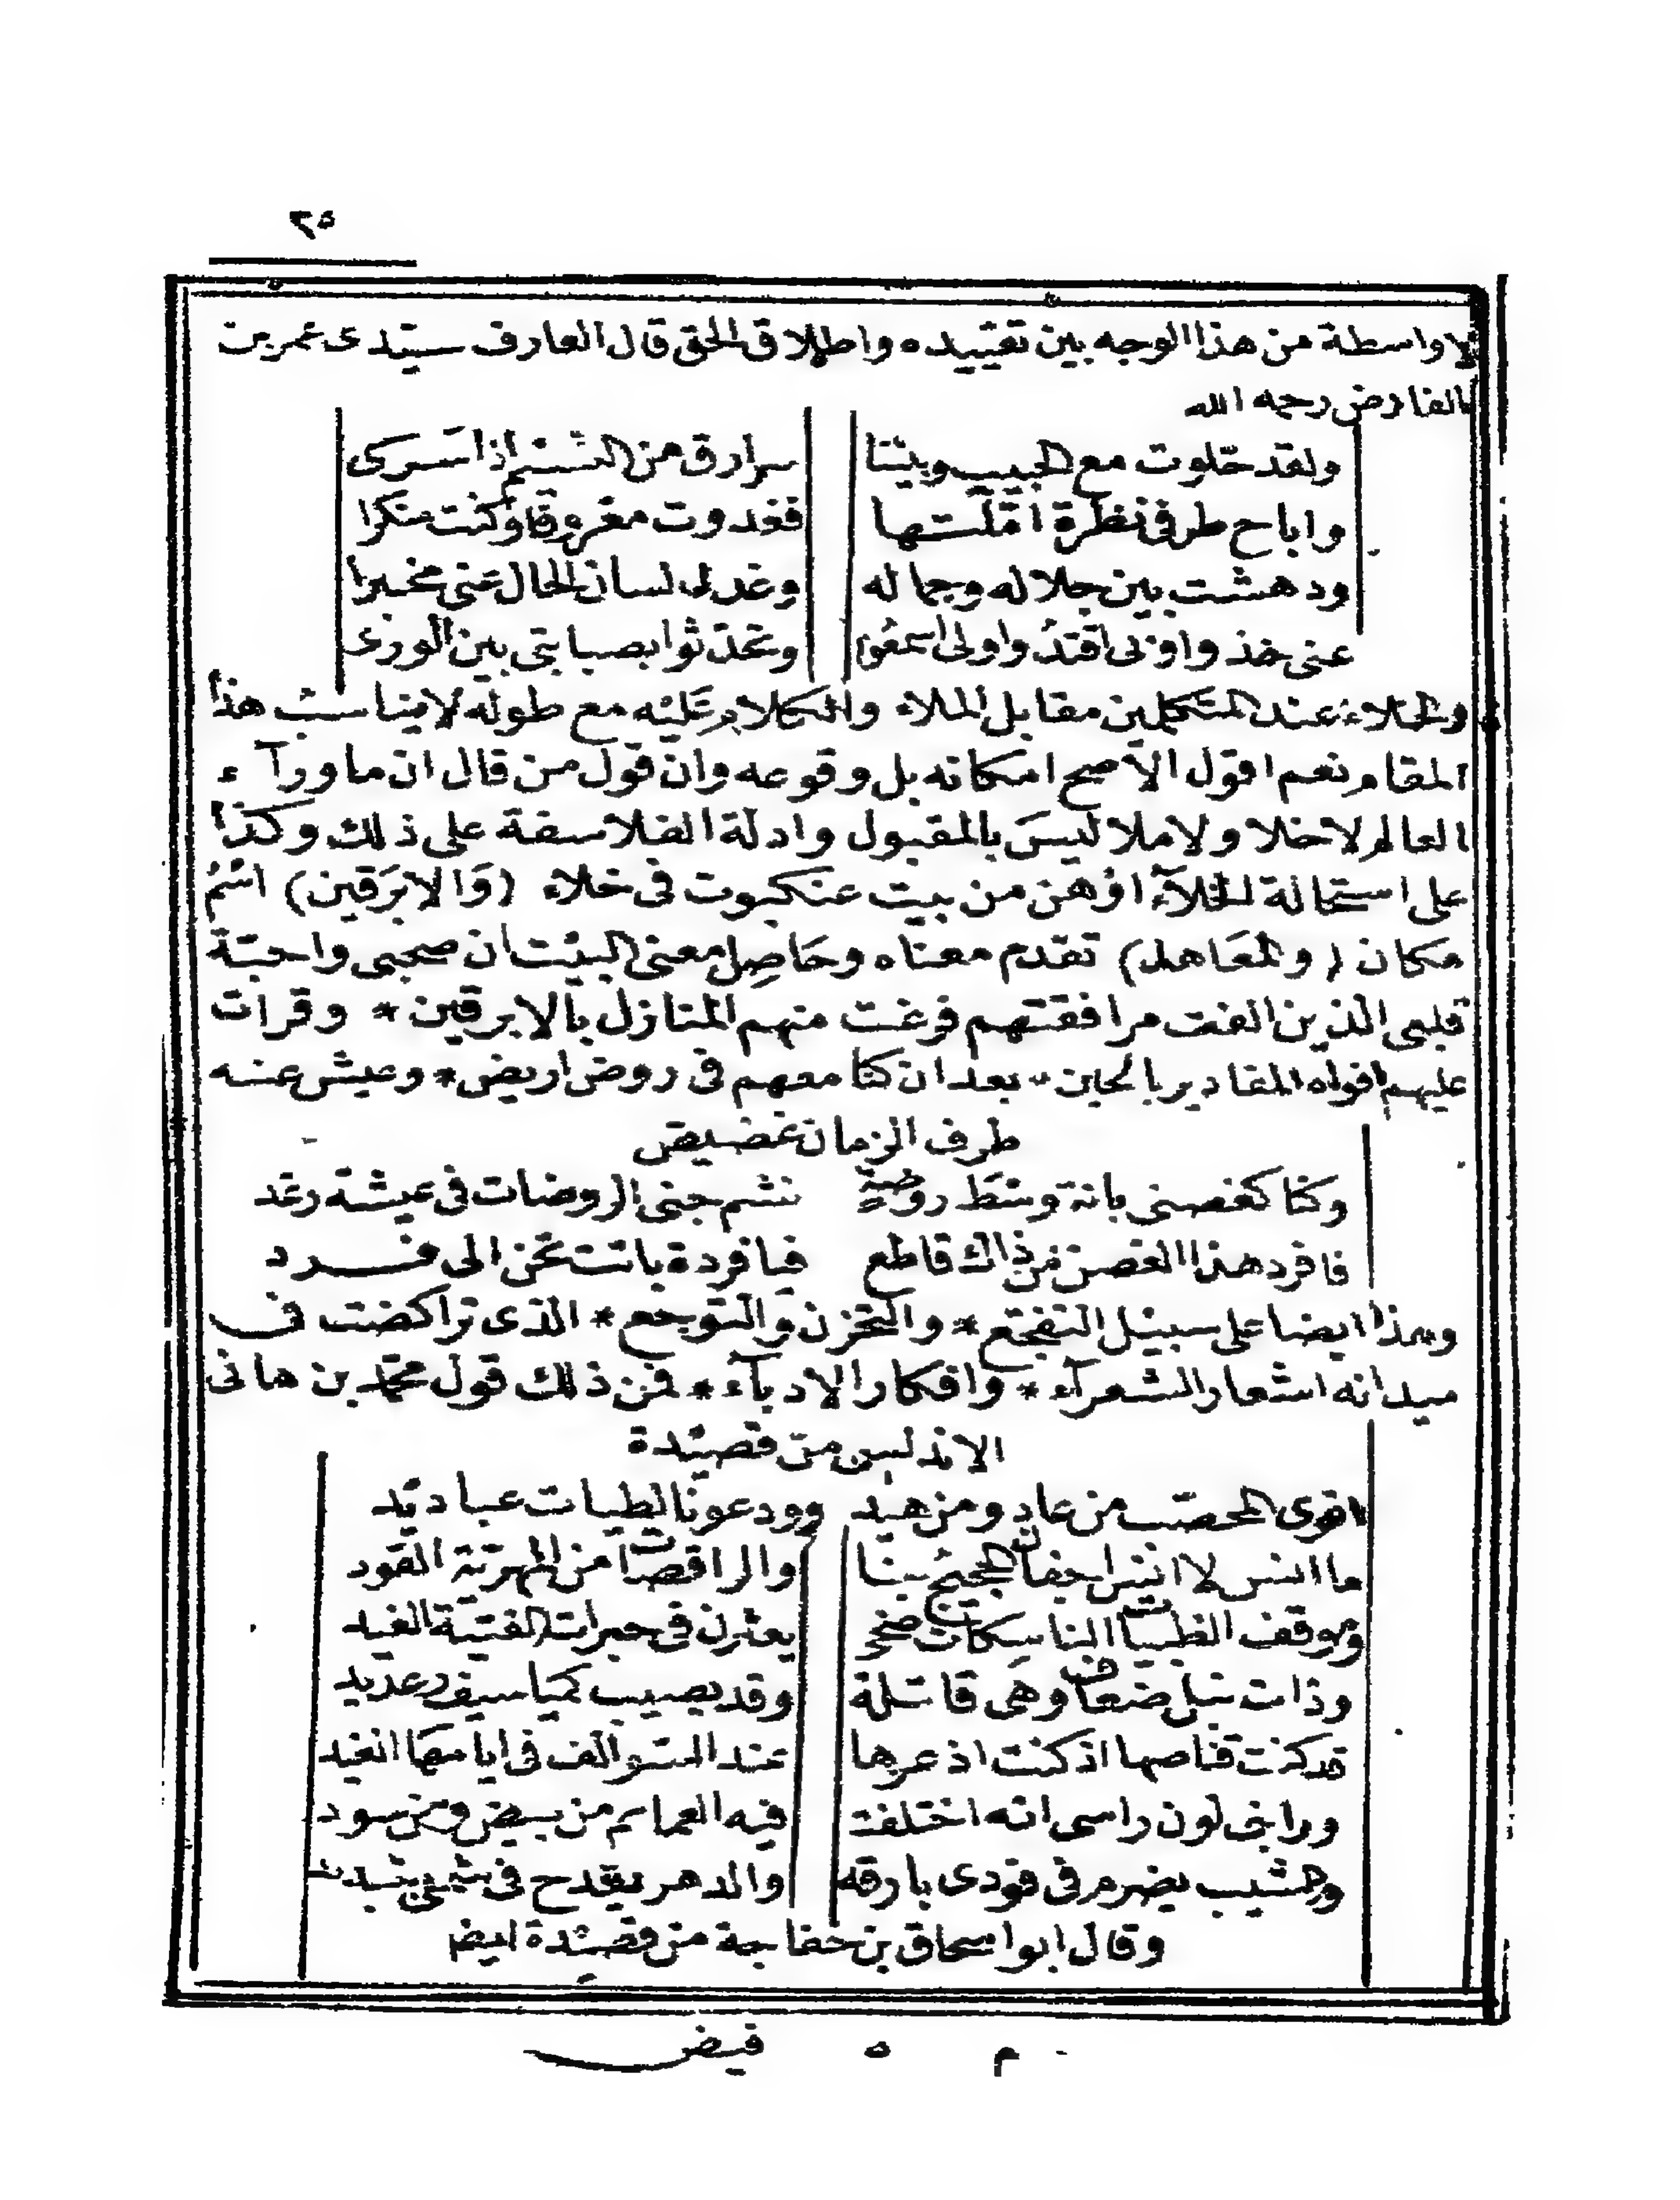 ٢٥
لا واسطة من هذا الوجه بين تقييده واطلاق الحق قال العارف سيدى عمر بن
الفارض رحمه الله
ولقد خلوت مع الحبيب وبيننا سر ارق من النسيم اذا سرى
واباح طرفى نظرة املتها فغدوت معروفا وكنت منكرا
ودهشت بين جلاله وجماله وغدا لسان الحال عنى مخبرا
عنى خذوا وبى اقتدوا ولى اسمعوا وتحدثوا بصبابتى بين الورى
والخلاء عند المتكلمين مقابل الملاء والكلام عليه مع طوله لا يناسب هذا
المقام نعم اقول الاصح امكانه بل وقوعه وان قول من قال ان ما ورآء
العالم لا خلا ولا ملا ليس بالمقبول وادلة الفلاسفة على ذلك وكذا
على استحالة الخلآء اوهن من بيت عنكبوت فى خلاء (وَالابرَقين) اسْمُ
مكان (والمعَاهد) تقدم معناه وحَاصِل معنى البيت ان صحبى واحبّة
قلبى الذين الفت مرافقتهم فرغت منهم المنازل بالابرقين * وقرات
عليهم افواه المقادير بالحين * بعد ان كنا معهم فى روض اريض * وعيش عنه
طرف الزمان غضيض
وكنا كغصنى بانة وسَط روضةٍ نشم جنى الروضات فى عيشة رغد
فافرد هذا الغصن من ذاك قاطع فيا فردة باتت تحن الى فرد
وهذا ايضا على سبيل التفجع * والتحزن والتوجع * الذى تراكضت فى
ميدانه اشعار الشعرآء * وافكار الادبآء * فمن ذلك قول محمد بن هانى
الاندلسى من قصيدة
اقوى المحصب من هاد ومن هيد وودعونا لطيات عباديد
ما انس لا انس اجفان الحجيج بنا والراقصات من المهرية القود
وموقف الظبيات الناسكات ضحى يعثرن فى حبرات الفتية الغيد
وذات نبل ضعاف وهى قاتلة وقد يصيب كميا سيف رعديد
قد كنت قناصها اذ كنت اذعرها عند السوالف فى ايامها الغيد
وراخى لون راسى انه اختلفت فيه العمايم من بيض ومن سود
وهشيب يضرم فى فودى بارقه والدهر يقدح فى
وقال ابو اسحاق بن خفاجة من قصيدة ايضا
م ٥ فيض